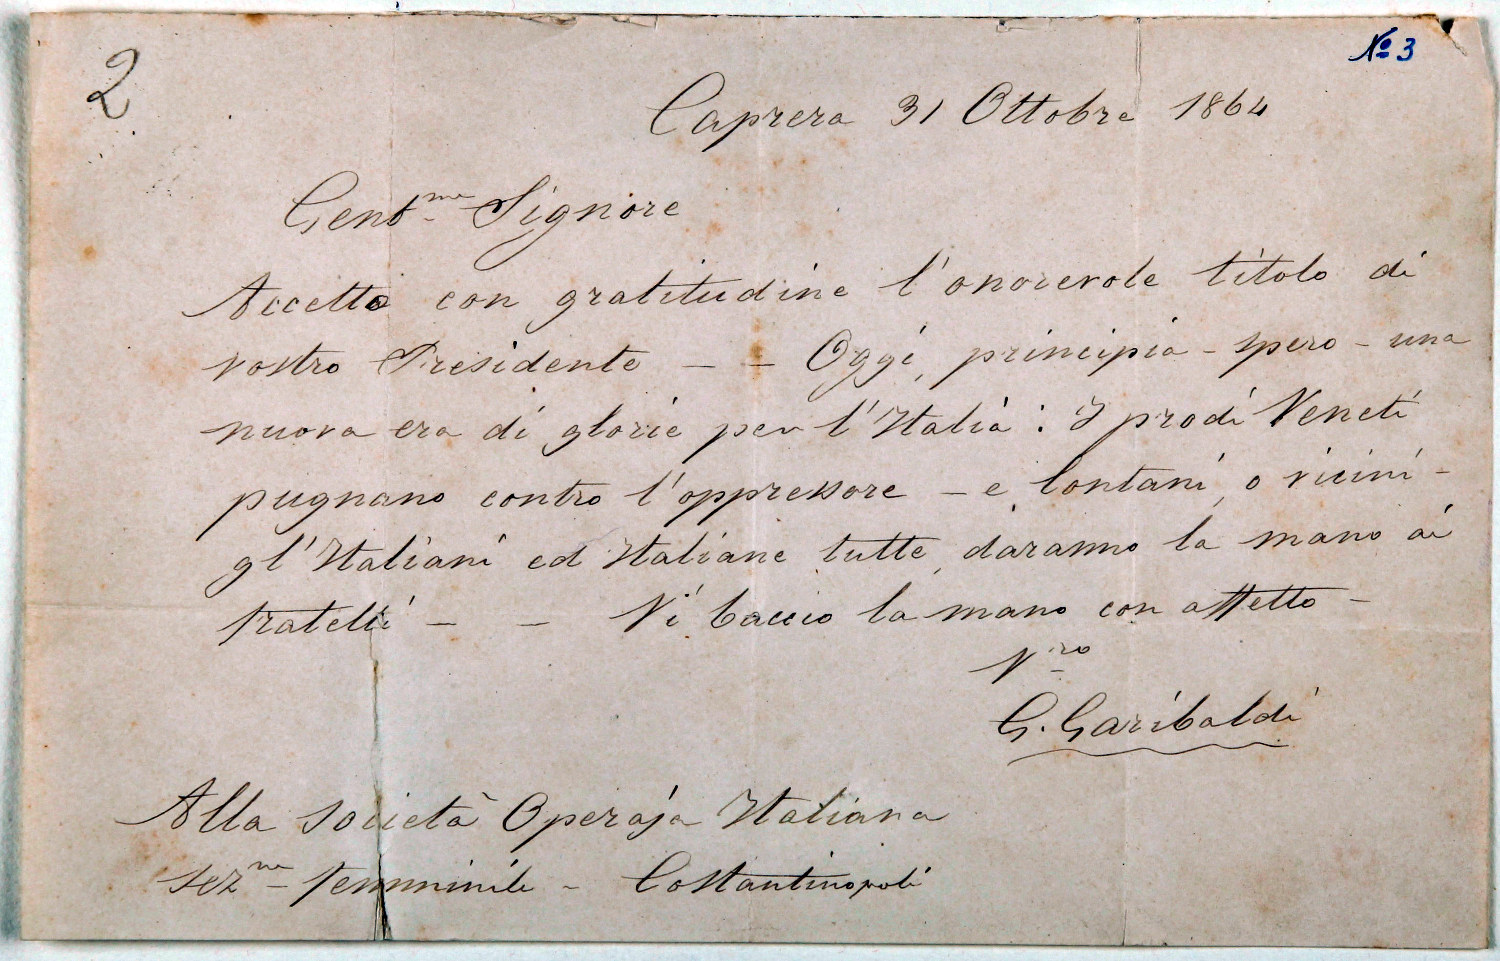 2
Nº 3
Caprera 31 Ottobre 1864
Gentme Signore
Accetto con gratitudine l'onorevole titolo di
vostro Presidente – – Oggi, principia – spero – una
nuova era di glorie per l'Italia: I prodi Veneti
pugnano contro l'oppressore – e, lontani, o vicini –
gl'Italiani ed Italiane tutte, daranno la mano ai
fratelli – – Vi baccio la mano con affetto –
Vro
G. Garibaldi
Alla società Operaja Italiana
sezne femminile – Costantinopoli